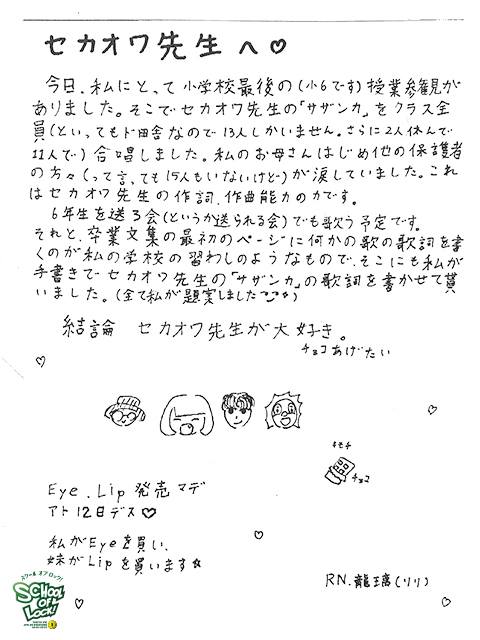 セカオワ先生へ♡
今日、私にとって小学校最後の(小6です)授業参観が
ありました。そこでセカオワ先生の「サザンカ」をクラス全
員(といってもド田舎なので13人しかいません。さらに2人休んで
11人で)合唱しました。私のお母さんはじめ他の保護者
の方々(って言っても15人もいないけど…)が涙していました。これ
はセカオワ先生の作詞、作曲能力の力です。
6年生を送る会(というか送られる会)でも歌う予定です。
それと、卒業文集の最初のページに何かの歌の歌詞を書
くのが私の学校の習わしのようなもので、そこにも私が
手書きでセカオワ先生の「サザンカ」の歌詞を書かせて貰
いました。(全て私が
結論 セカオワ先生が大好き。
チョコあげたい
キモチ
チョコ
Eye、Lip発売マデ
アト12日デス♡
私がEyeを買い、
妹がLipを買います☆
RN.龍璃(リリ)
スクール オブ ロック!
SCHOOL
OF
LOCK!